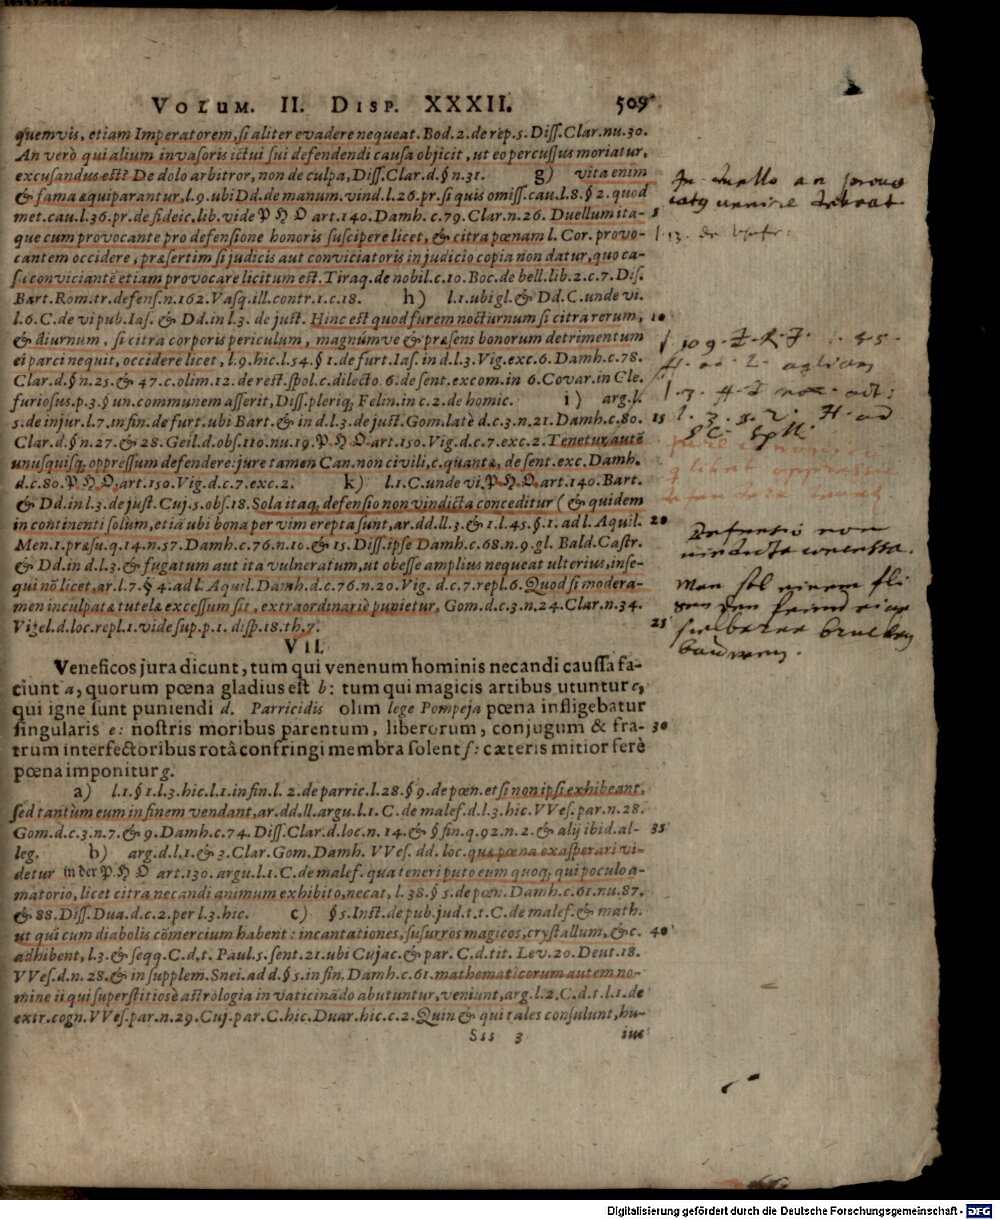 VOLUM. II. DISP. XXXII. 509
quemvis, etiam Imperatorem, si aliter evadere nequeat. Bod. 2. de rep. 5. Diss. Clar. nu. 30.
An verò qui alium invasoris ictui sui defendendi causa objicit, ut eo percussus moriatur,
excusandus est? De dolo arbitror, non de culpa, Diss. Clar. d. § n. 31. g) vita enim
& fama æquiparantur, l. 9. ubi Dd. de manum. vind. l. 26. pr. si quis omiss. cau. l. 8. § 2. quod
met. cau. l. 36. pr. de fideic. lib. vide P H O art. 140. Damh. c. 79. Clar. n. 26. Duellum ita- 5
que cum provocante pro defensione honoris suscipere licet, & citra pœnam l. Cor. provo-
cantem occidere, præsertim si judicis aut conviciatoris in judicio copia non datur, quo ca-
su conviciantē etiam provocare licitum est. Tiraq. de nobil. c. 10. Boc. de bell. lib. 2. c. 7. Dis.
Bart. Rom. tr. defens. n. 162. Vasq. ill. contr. 1. c. 18. h) l. 1. ubi gl. & Dd. C. unde vi.
l. 6. C. de vi pub. Ias. & Dd. in l. 3. de just. Hinc est quod furem nocturnum si citra rerum, 10
& diurnum, si citra corporis periculum, magnumve & præsens bonorum detrimentum
ei parci nequit, occidere licet, l. 9. hic. l. 54. § 1. de furt. Ias. in d. l. 3. Vig. exc. 6. Damh. c. 78.
Clar. d. § n. 25. & 47. c. olim. 12. de rest. spol. c. dilecto. 6. de sent. excom. in 6. Covar. in Cle.
furiosus. p. 3. § un. communem asserit, Diss. pleriq; Felin. in c. 2. de homic. i) arg. l.
5. de injur. l. 7. in fin. de furt. ubi Bart. & in d. l. 3. de just. Gom. latè d. c. 3. n. 21. Damh. c. 80. 15
Clar. d. § n. 27. & 28. Geil. d. obs. 110. nu. 19. P H O art. 150. Vig. d. c. 7. exc. 2. Tenetur autē
unusquisq; oppressum defendere: jure tamen Can. non civili, c. quantæ, de sent. exc. Damh.
d. c. 80. P H O. art. 150. Vig. d. c. 7. exc. 2. k) l. 1. C. unde vi. P H O. art. 140. Bart.
& Dd. in l. 3. de just. Cuj. 5. obs. 18. Sola itaq; defensio non vindicta conceditur (& quidem
in continenti solum, etiā ubi bona per vim erepta sunt, ar. dd. ll. 3. & 1. l. 45. § 1. ad l. Aquil. 20
Men. 1. præsu. q. 14. n. 57. Damh. c. 76. n. 10. & 15. Diss. ipse Damh. c. 68. n. 9. gl. Bald. Castr.
& Dd. in d. l. 3. & fugatum aut ita vulneratum, ut obesse amplius nequeat ulterius, inse-
qui nō licet, ar. l. 7. § 4. ad l. Aquil. Damh. d. c. 76. n. 20. Vig. d. c. 7. repl. 6. Quod si modera-
men inculpatæ tutelæ excessum sit, extraordinariè punietur, Gom. d. c. 3. n. 24. Clar. n. 34.
Vigel. d. loc. repl. 1. vide sup. p. 1. disp. 18. th. 7. 25
VII.
Veneficos jura dicunt, tum qui venenum hominis necandi caussa fa-
ciunt a, quorum pœna gladius est b: tum qui magicis artibus utuntur c,
qui igne sunt puniendi d. Parricidis olim lege Pompeja pœna infligebatur
singularis e: nostris moribus parentum, liberorum, conjugum & fra- 30
trum interfectoribus rotâ confringi membra solent f: cæteris mitior ferè
pœna imponitur g.
a) l. 1. § 1. l. 3. hic. l. 1. in fin. l. 2. de parric. l. 28. § 9. de pœn. et si non ipsi exhibeant,
sed tantùm eum in finem vendant, ar. dd. ll. argu. l. 1. C. de malef. d. l. 3. hic. VVes. par. n. 28.
Gom. d. c. 3. n. 7. & 9. Damh. c. 74. Diss. Clar. d. loc. n. 14. & § fin. q. 92. n. 2. & alij ibid. al- 35
leg. b) arg. d. l. 1. & 3. Clar. Gom. Damh. VVes. dd. loc. quæ pœna exasperari vi-
detur in der P. H O art. 130. argu. l. 1. C. de malef. qua teneri puto eum quoq; qui poculo a-
matorio, licet citra necandi animum exhibito, necat, l. 38. § 5. de pœn. Damh. c. 61. nu. 87.
& 88. Diss. Dua. d. c. 2. per l. 3. hic. c) § 5. Inst. de pub. jud. t. t. C. de malef. & math.
ut qui cum diabolis cōmercium habent: incantationes, susurros magicos, crystallum, &c. 40
adhibent, l. 3. & seqq. C. d. t. Paul. 5. sent. 21. ubi Cujac. & par. C. d. tit. Lev. 20. Deut. 18.
VVes. d. n. 28. & in supplem. Snei. ad d. § 5. in fin. Damh. c. 61. mathematicorum autem no-
mine ii qui superstitiosè astrologia in vaticinādo abutuntur, veniunt, arg. l. 2. C. d. t. l. 1. de
extr. cogn. VVes. par. n. 29. Cuj. par. C. hic. Duar. hic. c. 2. Quin & qui tales consulunt, hu-
Sss 3 ius
In duello an provo
Defensio non
vindicta concessa.
Man sol einem fli
Digitalisierung gefördert durch die Deutsche Forschungsgemeinschaft - DFG